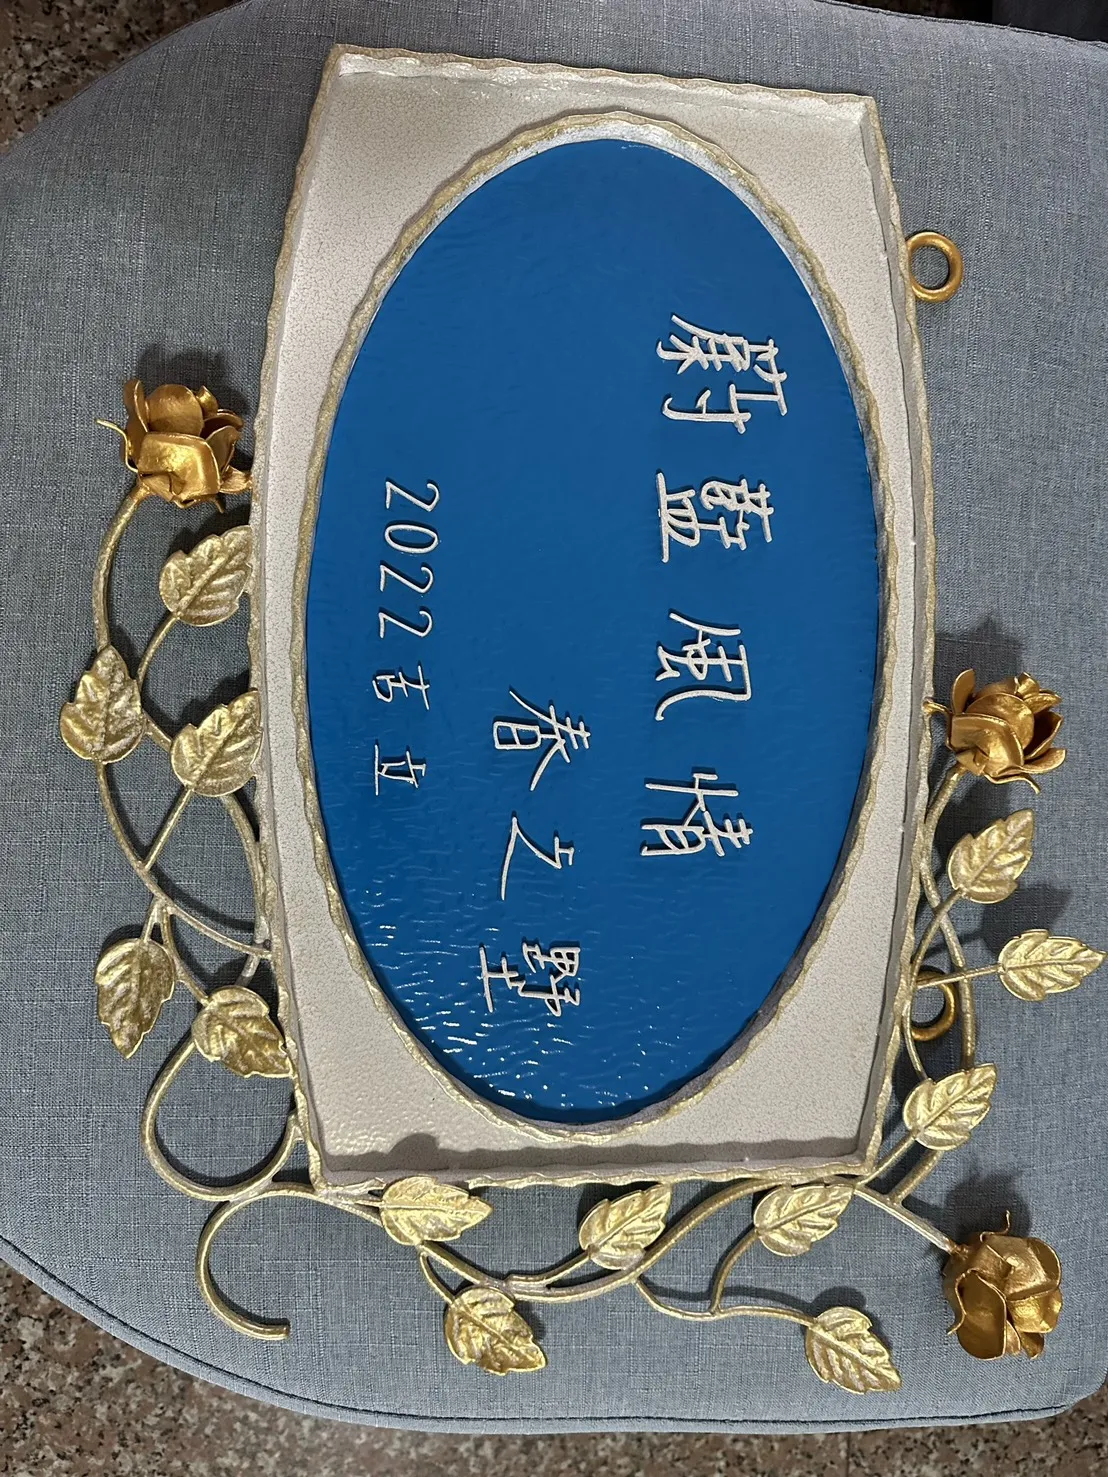 蔚藍風情
春之墅
2022吉立